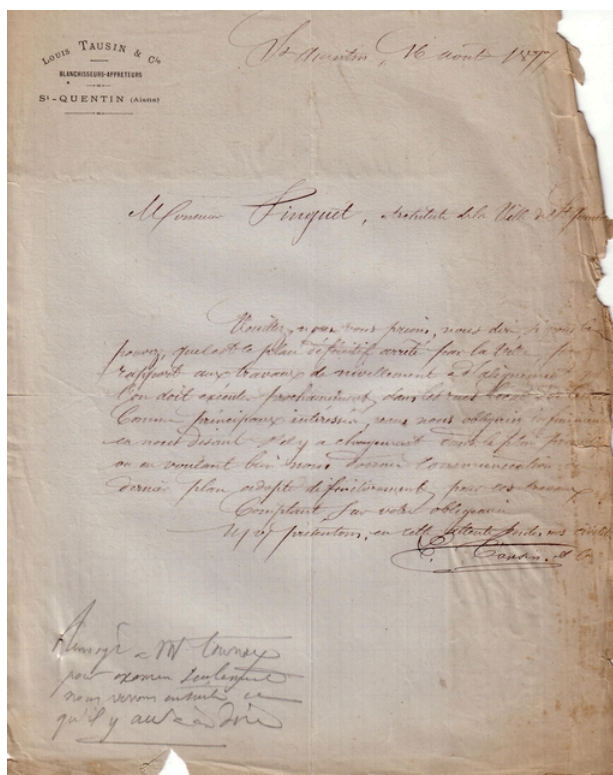 LOUIS TAUSIN & Cie
BLANCHISSEURS-APPRETEURS
St-QUENTIN (Aisne)
St Quentin, 16 août 1877
Monsieur Pinguet, Architecte de la Ville de St Quentin
Veuillez, nous vous prions, nous dire si vous le
pouvez, quel est le plan définitif arrêté par la Ville, par
rapport aux travaux de nivellement & d'alignement que
l'on doit exécuter prochainement, dans les rues
Comme principaux intéressés, vous nous obligeriez infiniment
en nous disant s'il y a changement dans le plan
ou en voulant bien nous donner communication du
dernier plan adopté définitivement, pour ces travaux.
Comptant sur votre obligeance
présentons, en cette attente,
L. Tausin & Cie
Renvoyé à Mr
pour examen seulement
nous verrons ensuite ce
qu'il y aura à dire